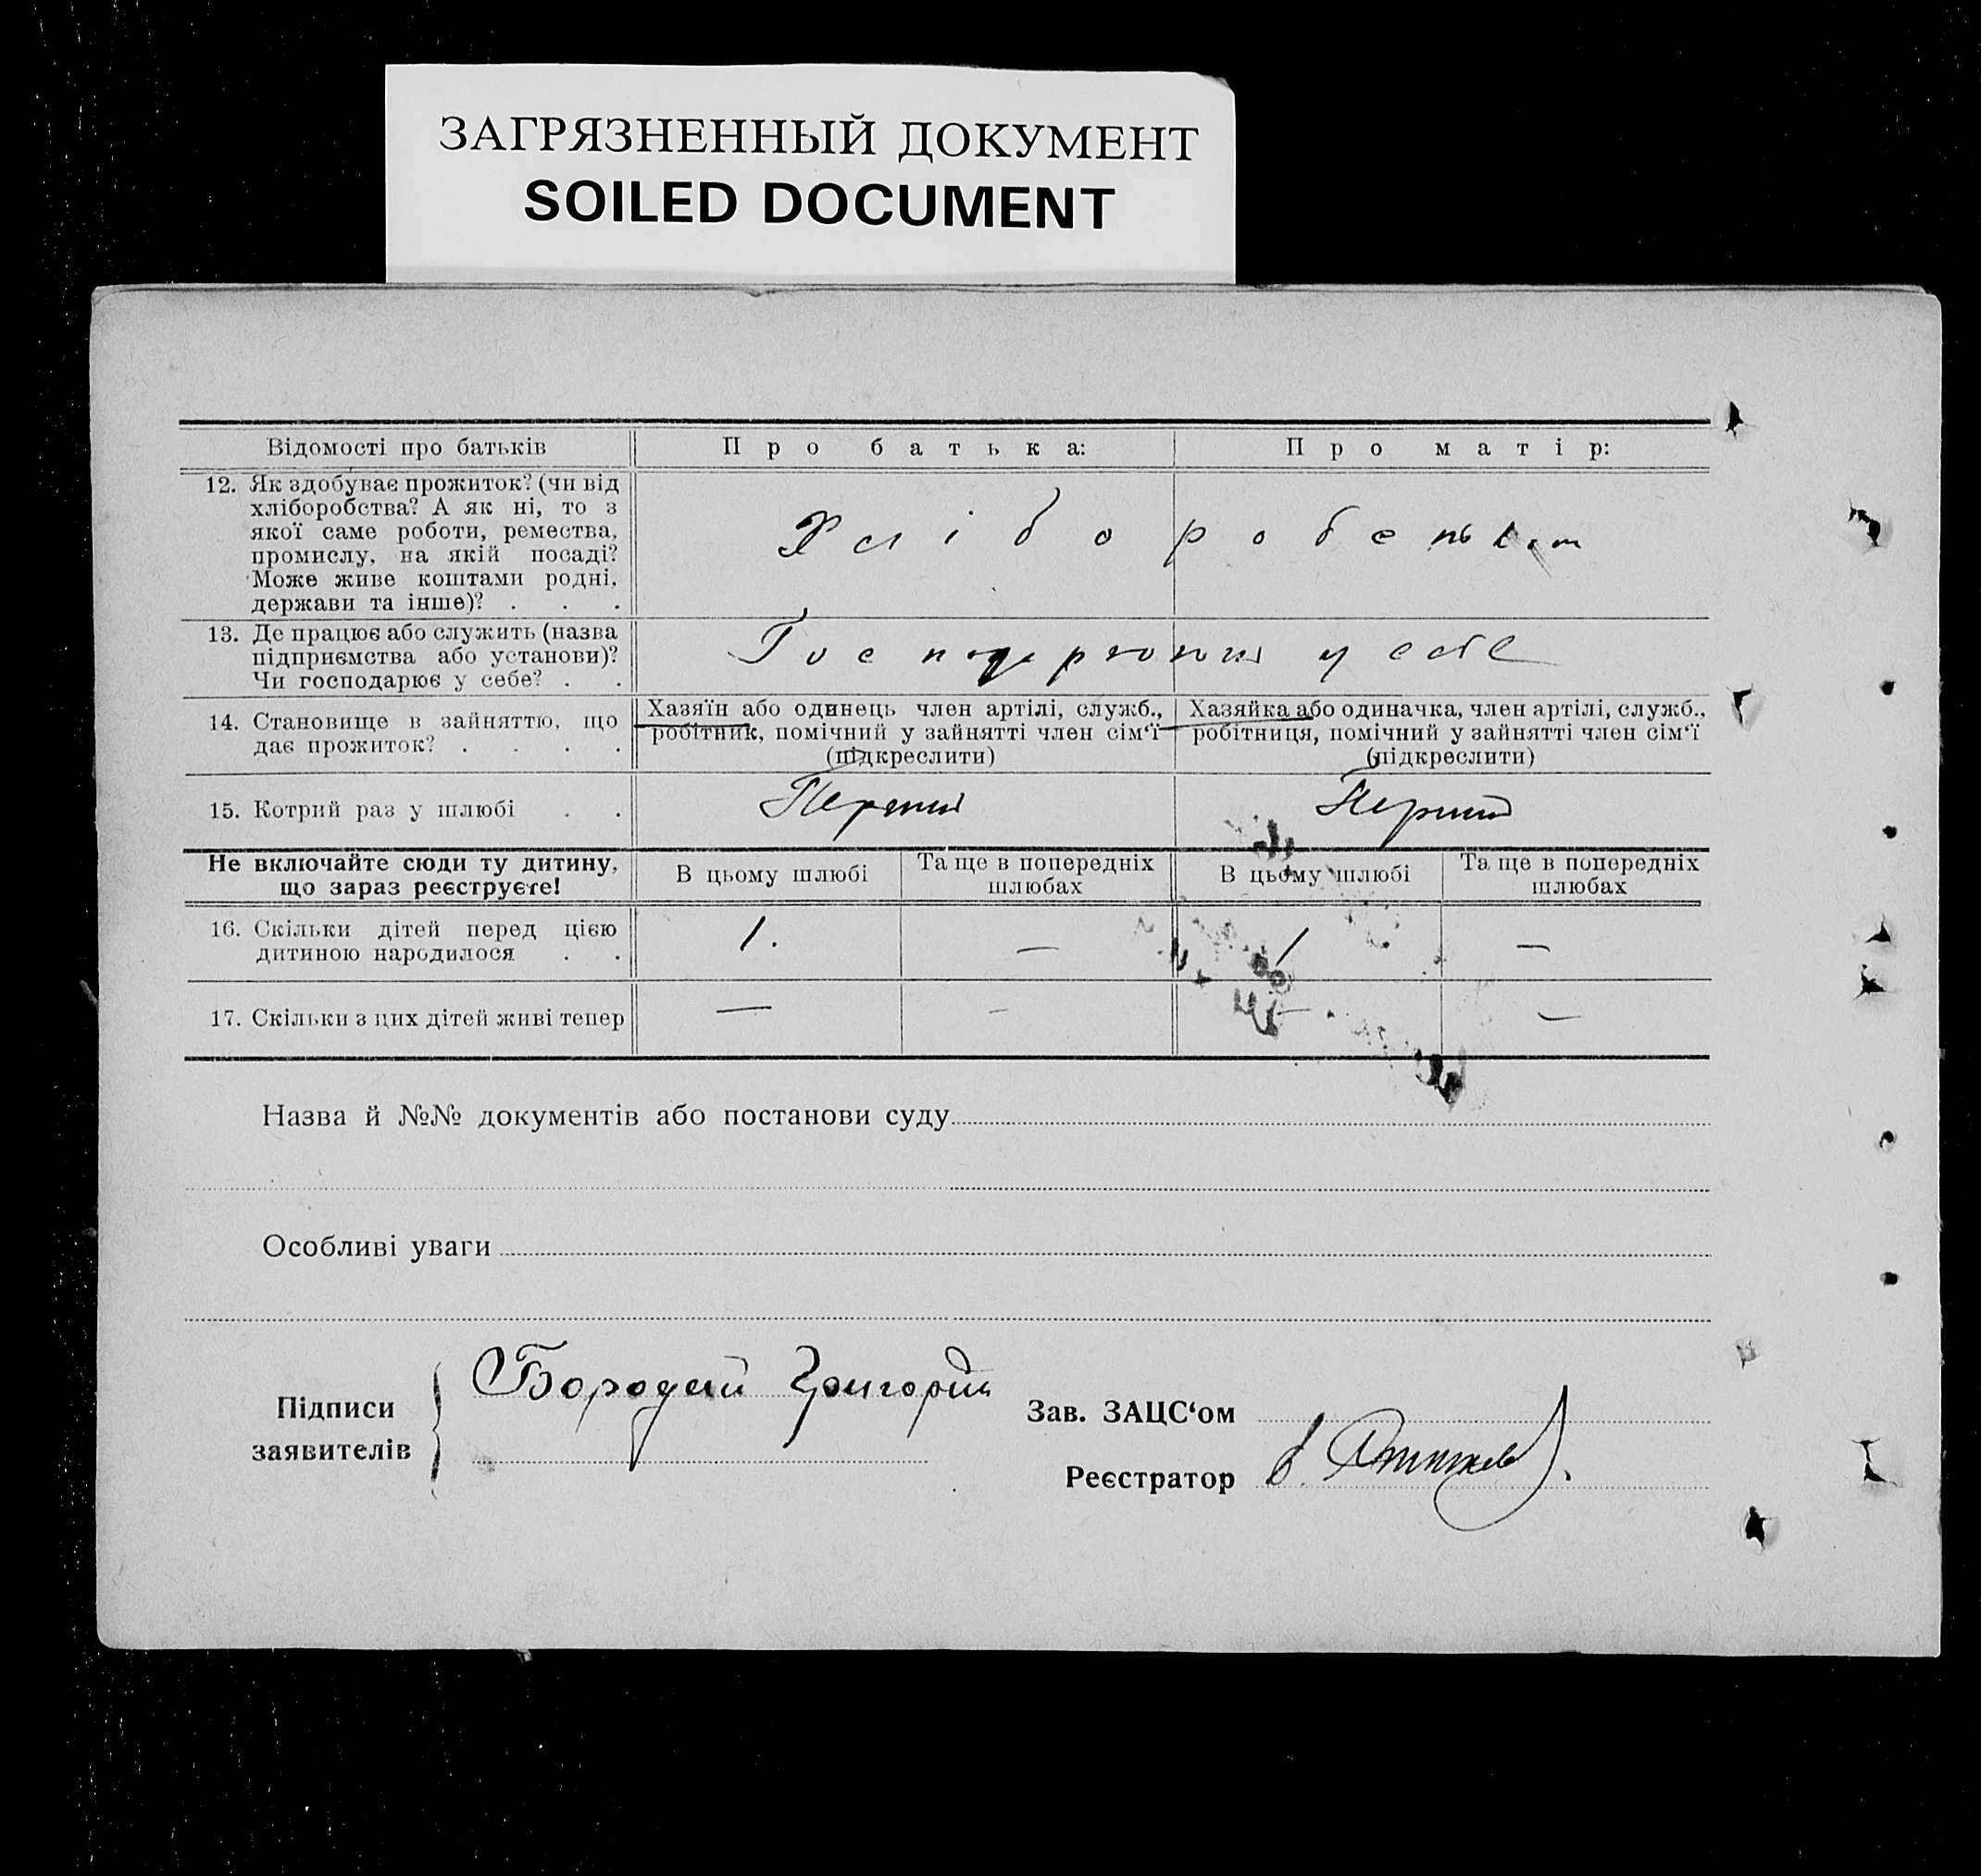 ЗАГРЯЗНЕННЫЙ ДОКУМЕНТ
SOILED DOCUMENT
Відомості про батьків
Про батька:
Про матір:
12. Як здобуває прожиток? (чи від
хліборобства? А як ні, то з
якої саме роботи, ремества,
промислу, на якій посаді?
Може живе коштами родні,
держави та інше)? . . .
Хліборобством
13. Де працює або служить (назва
підприємства або установи)?
Чи господарює у себе? . .
у себе
14. Становище в зайняттю, що
дає прожиток? . . . .
Хазяїн або одинець член артілі, служб.,
робітник, помічний у зайнятті член сім'ї
(підкреслити)
Хазяйка або одиначка, член артілі, служб.,
робітниця, помічний у зайнятті член сім'ї
(підкреслити)
15. Котрий раз у шлюбі . .
Перший
Перший
Не включайте сюди ту дитину,
що зараз реєструєте!
В цьому шлюбі
Та ще в попередніх
шлюбах
В цьому шлюбі
Та ще в попередніх
шлюбах
16. Скільки дітей перед цією
дитиною народилося . .
1. — 1 —
17. Скільки з цих дітей живі тепер
— — — —
Назва й №№ документів або постанови суду
Особливі уваги
Підписи
заявителів
Бородай Григорій
Зав. ЗАЦС'ом
Реєстратор